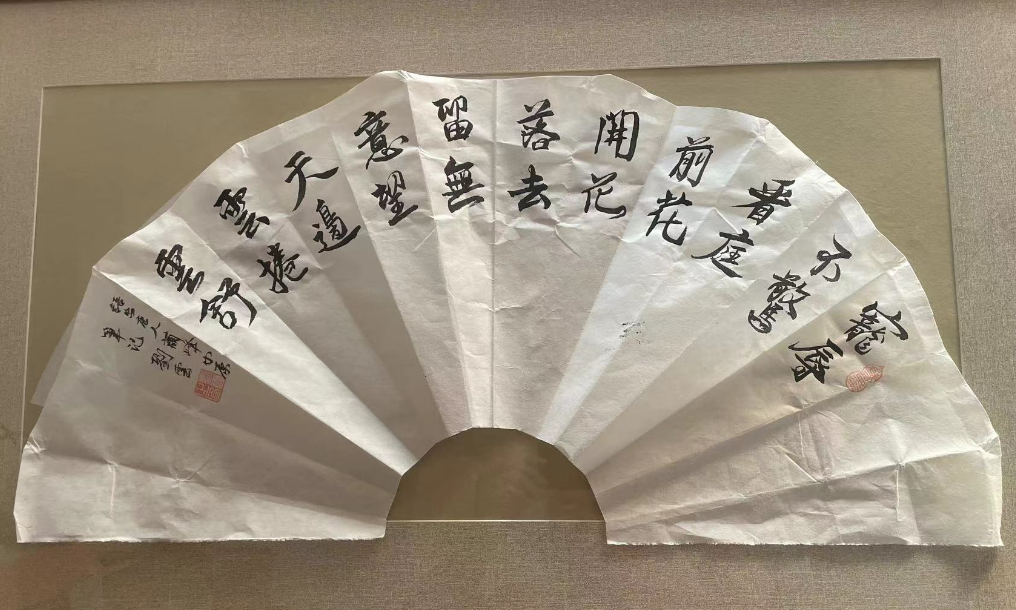 寵辱
不驚
看庭
前花
開花
落去
留無
意望
天邊
雲捲
雲舒
筆記
劉雲